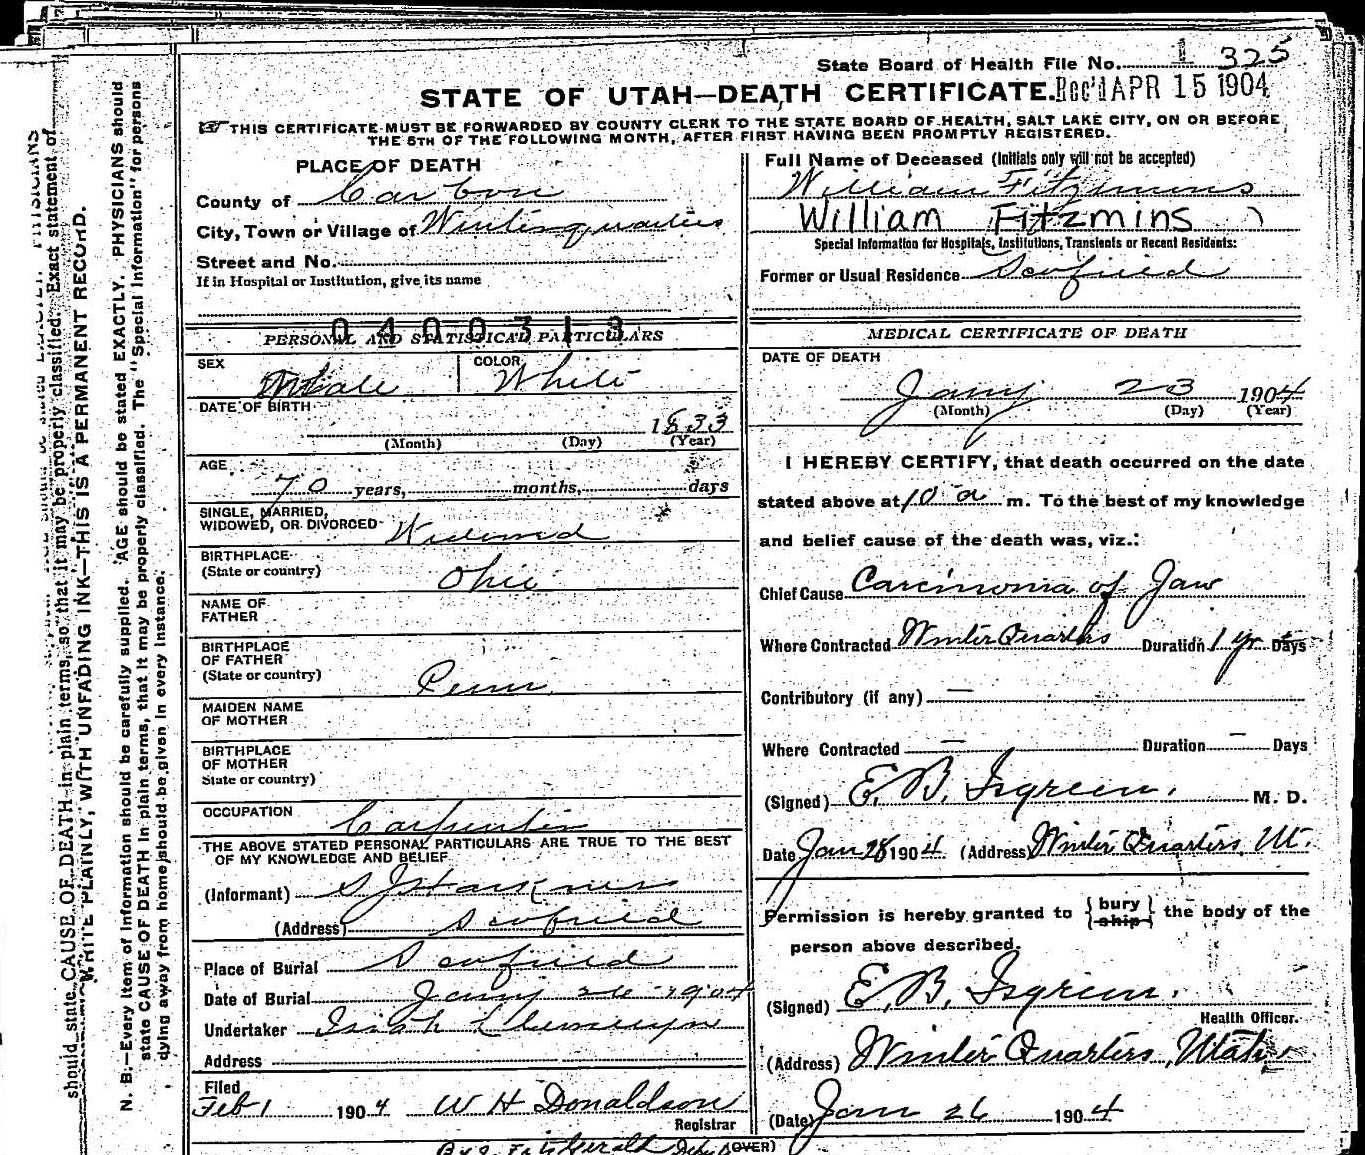 State Board of Health File No. 1 325
STATE OF UTAH—DEATH CERTIFICATE. Rec'd APR 15 1904
THIS CERTIFICATE MUST BE FORWARDED BY COUNTY CLERK TO THE STATE BOARD OF HEALTH, SALT LAKE CITY, ON OR BEFORE
THE 5TH OF THE FOLLOWING MONTH, AFTER FIRST HAVING BEEN PROMPTLY REGISTERED.
PLACE OF DEATH
County of Carbon
City, Town or Village of Winterquarters
Street and No.
If in Hospital or Institution, give its name
0400313
PERSONAL AND STATISTICAL PARTICULARS
SEX Male COLOR White
DATE OF BIRTH 1833
(Month) (Day) (Year)
AGE
70 years, months, days
SINGLE, MARRIED,
WIDOWED, OR DIVORCED Widowed
BIRTHPLACE
(State or country) Ohio
NAME OF
FATHER
BIRTHPLACE
OF FATHER
(State or country) Penn
MAIDEN NAME
OF MOTHER
BIRTHPLACE
OF MOTHER
State or country)
OCCUPATION Carpenter
THE ABOVE STATED PERSONAL PARTICULARS ARE TRUE TO THE BEST
OF MY KNOWLEDGE AND BELIEF
(Informant) S J Harkness
(Address) Scofield
Place of Burial Scofield
Date of Burial Jany 26 1904
Undertaker
Address
Filed
Feb 1 1904 W H Donaldson
Registrar
(OVER)
Full Name of Deceased (Initials only will not be accepted)
William Fitzmins
William Fitzmins )
Special Information for Hospitals, Institutions, Transients or Recent Residents:
Former or Usual Residence Scofield
MEDICAL CERTIFICATE OF DEATH
DATE OF DEATH
Jany 23 1904
(Month) (Day) (Year)
I HEREBY CERTIFY, that death occurred on the date
stated above at 10 a m. To the best of my knowledge
and belief cause of the death was, viz.:
Chief Cause Carcinoma of Jaw
Where Contracted Winter Quarters Duration 1 yr Days
Contributory (if any) —
Where Contracted — Duration — Days
(Signed) E. B. Isgreen. M. D.
Date Jan 28 1904 (Address) Winter Quarters, Ut.
Permission is hereby granted to { bury ship } the body of the
person above described.
(Signed) E. B. Isgreen.
Health Officer.
(Address) Winter Quarters, Utah
(Date) Jan 26 1904
N. B.—Every item of information should be carefully supplied. AGE should be stated EXACTLY. PHYSICIANS should
state CAUSE OF DEATH in plain terms, that it may be properly classified. The "Special Information" for persons
dying away from home should be given in every instance.
WRITE PLAINLY, WITH UNFADING INK—THIS IS A PERMANENT RECORD.
should state CAUSE OF DEATH in plain terms, so that it may be properly classified. Exact statement of